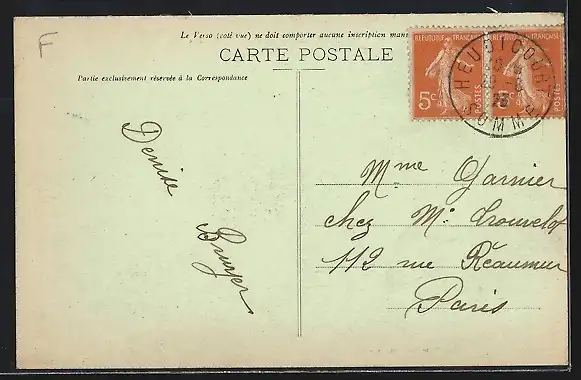 F
Le Verso (côté vue) ne doit comporter aucune inscription man
CARTE POSTALE
Partie exclusivement réservée à la Correspondance
REPUBLIQUE FRANÇAISE
5c
POSTES
FRANÇAISE
POSTES
HEUDICOURT
SOMME
Denise
Bruyer
Mme Garnier
chez Mr Crouvelot
112 rue Réaumur
Paris